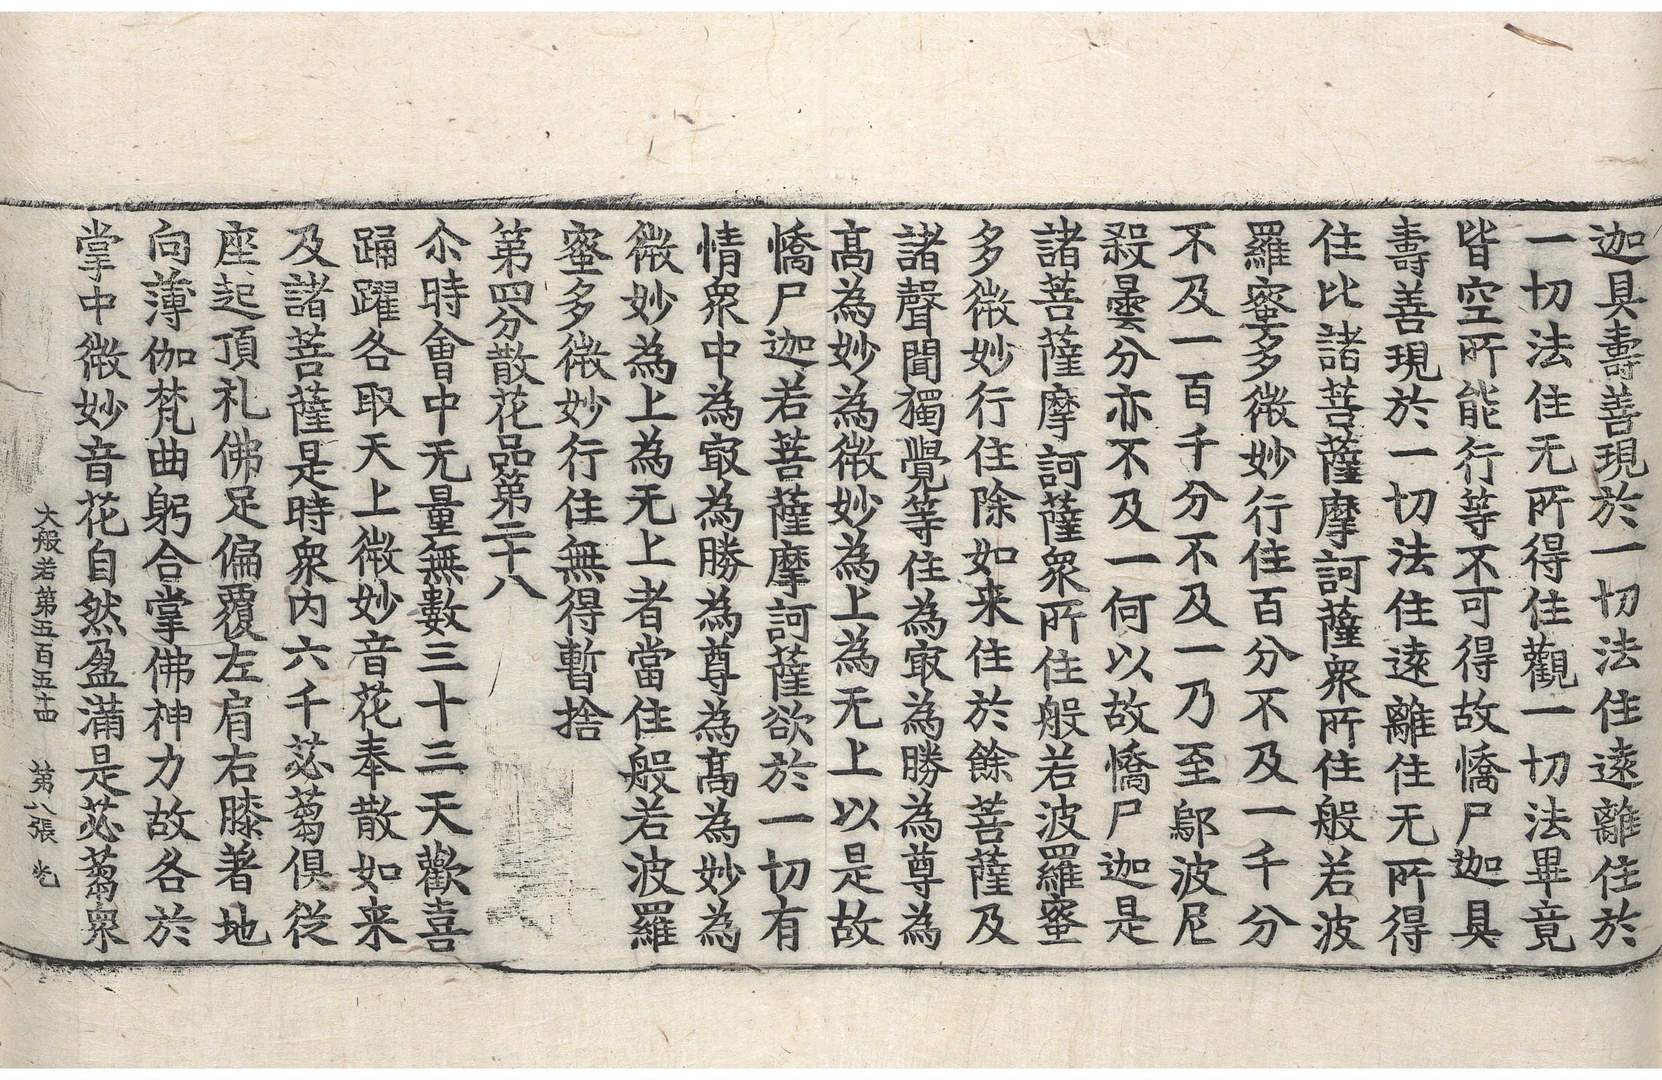 迦具壽善現於一切法住遠離住於
一切法住无所得住觀一切法畢竟
皆空所能行等不可得故憍尸迦具
壽善現於一切法住遠離住无所得
住比諸菩薩摩訶薩衆所住般若波
羅蜜多微妙行住百分不及一千分
不及一百千分不及一乃至鄔波尼
殺曇分亦不及一何以故憍尸迦是
諸菩薩摩訶薩衆所住般若波羅蜜
多微妙行住除如来住於餘菩薩及
諸聲聞獨覺等住為㝡為勝為尊為
髙為妙為微妙為上為无上以是故
憍尸迦若菩薩摩訶薩欲於一切有
情衆中為㝡為勝為尊為髙為妙為
微妙為上為无上者當住般若波羅
蜜多微妙行住無得暫捨
第四分散花品第二十八
尒時會中无量無數三十三天歡喜
踊躍各取天上微妙音花奉散如来
及諸菩薩是時衆内六千苾蒭俱從
座起頂礼佛足偏覆左肩右膝著地
向薄伽梵曲躬合掌佛神力故各於
掌中微妙音花自然盈滿是苾蒭衆
大般若第五百五十四 第八張 光